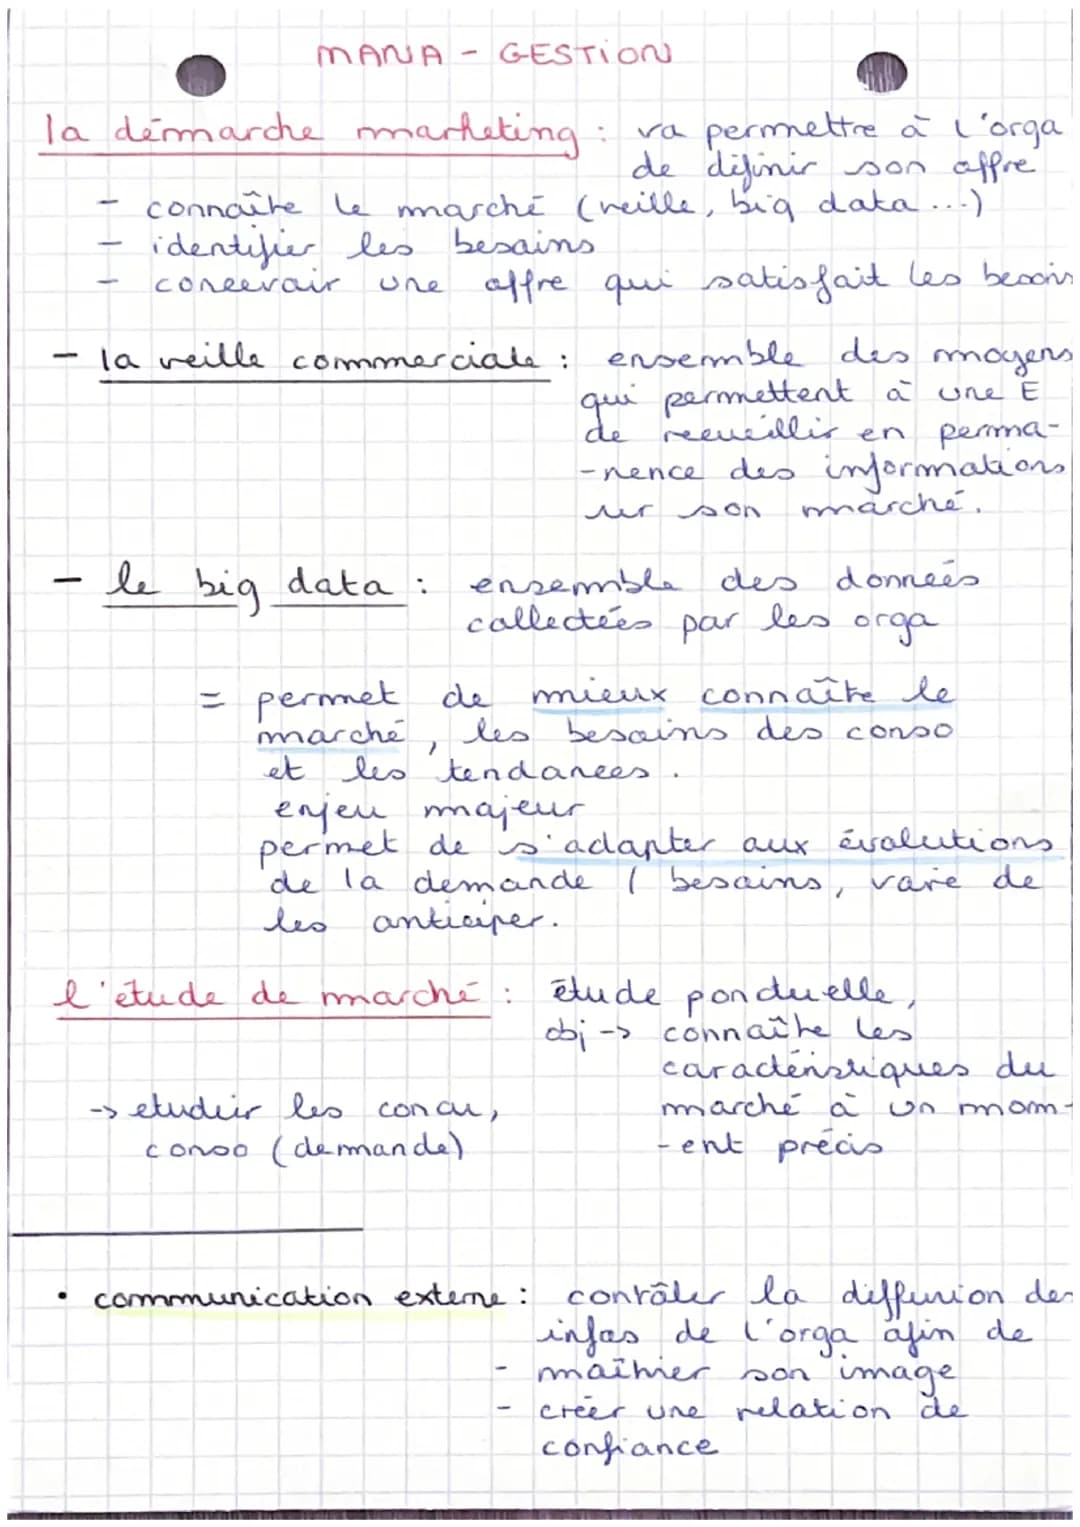 MANA - GESTION
la démarche marketing : va permettre à l'orga
de définir son offre
- connaître le marché (veille, big data ...)
- identifier les besoins
- concevoir une offre qui satisfait les besoins
- la veille commerciale : ensemble des moyens
qui permettent à une E
de recueillir en perma-
-nence des informations
sur son marché.
- le big data : ensemble des données
collectées par les orga
= permet de mieux connaître le
marché, les besoins des conso
et les tendances.
enjeu majeur
permet de s'adapter aux évolutions
de la demande / besoins, voire de
les anticiper.
l'étude de marché : étude ponctuelle,
obj -> connaître les
caractéristiques du
marché à un mom-
-ent précis
-> etudier les concu,
conso (demande)
• communication externe : contrôler la diffusion des
infos de l'orga afin de
- maîtrier son image
- créer une relation de
confiance